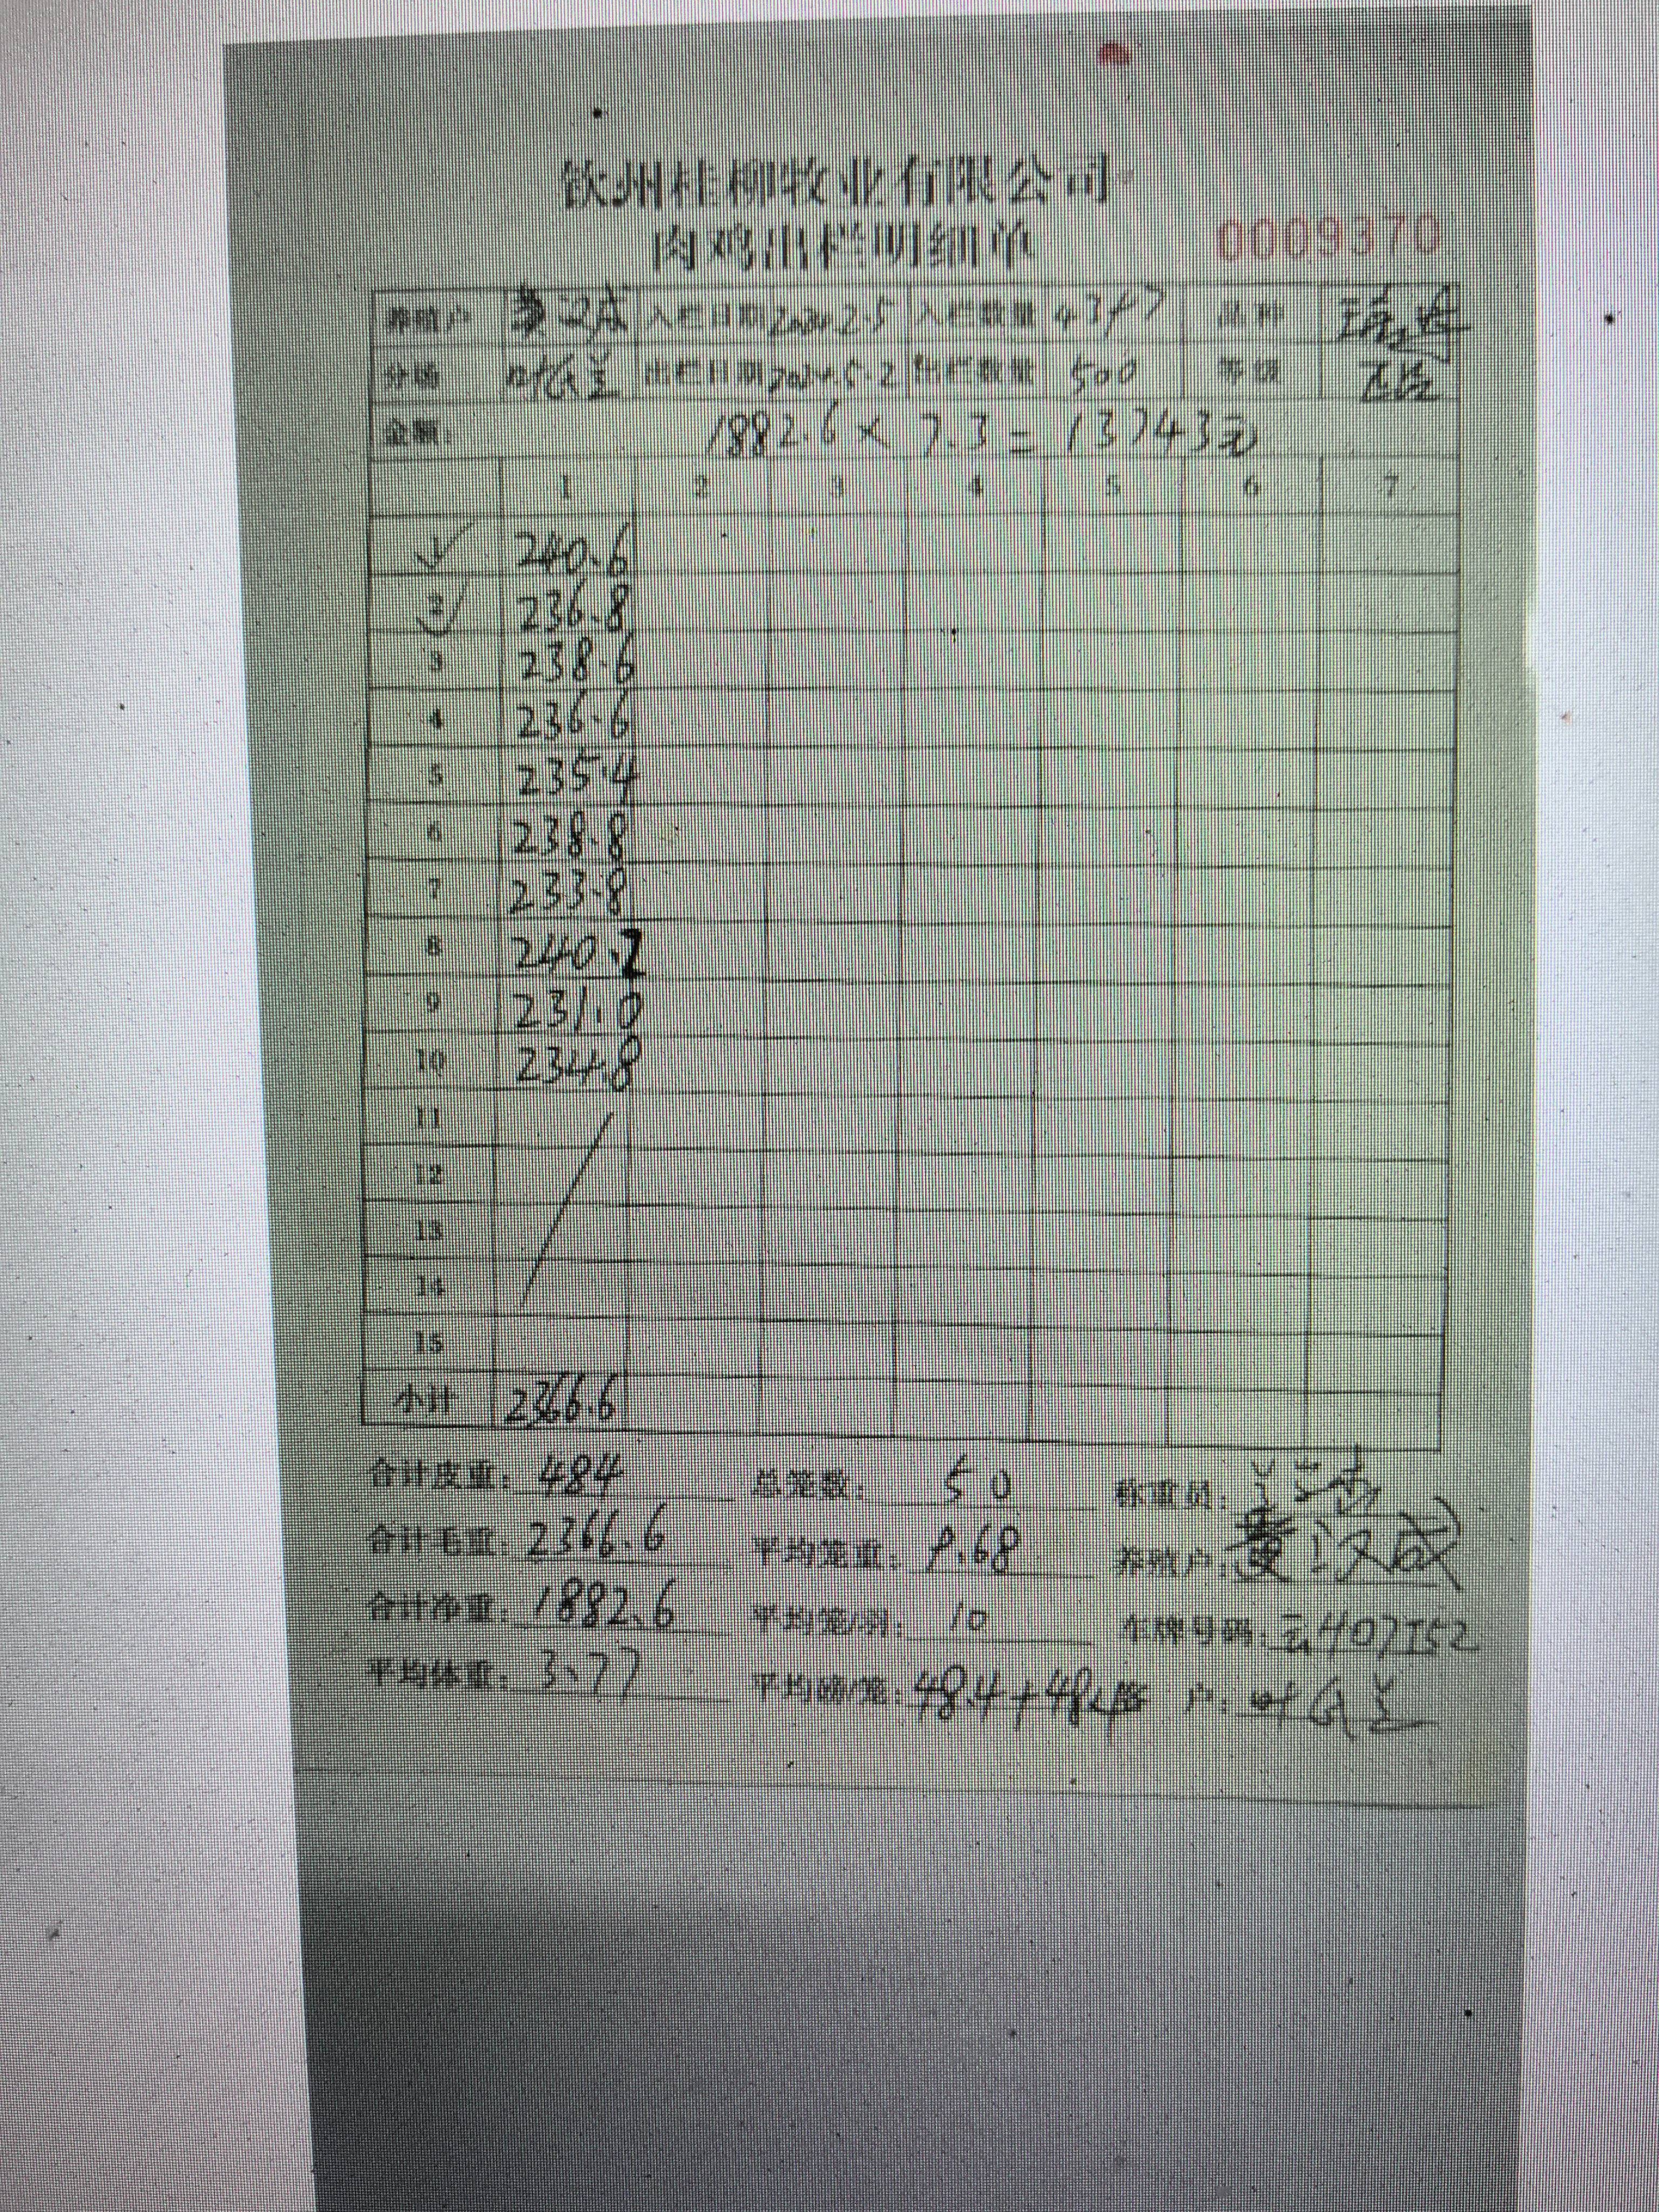 钦州桂柳牧业有限公司
肉鸡出栏明细单 0009370
养殖户 入栏日期 2024.2.5 入栏数量 4397 品种
分场 出栏日期 2024.5.2 出栏数量 500 等级
金额: 1882.6 × 7.3 = 13743元
1 2 3 4 5 6 7
1 240.6
2 236.8
3 238.6
4 236.6
5 235.4
6 238.8
7 233.8
8 240.2
9 231.0
10 234.8
11
12
13
14
15
小计 2366.6
合计皮重: 484 总笼数: 50 称重员:
合计毛重: 2366.6 平均笼重: 9.68 养殖户: 汉成
合计净重: 1882.6 平均笼/羽: 10 车牌号码:
平均体重: 3.77 平均磅/笼: 48.4+48.4 客 户: